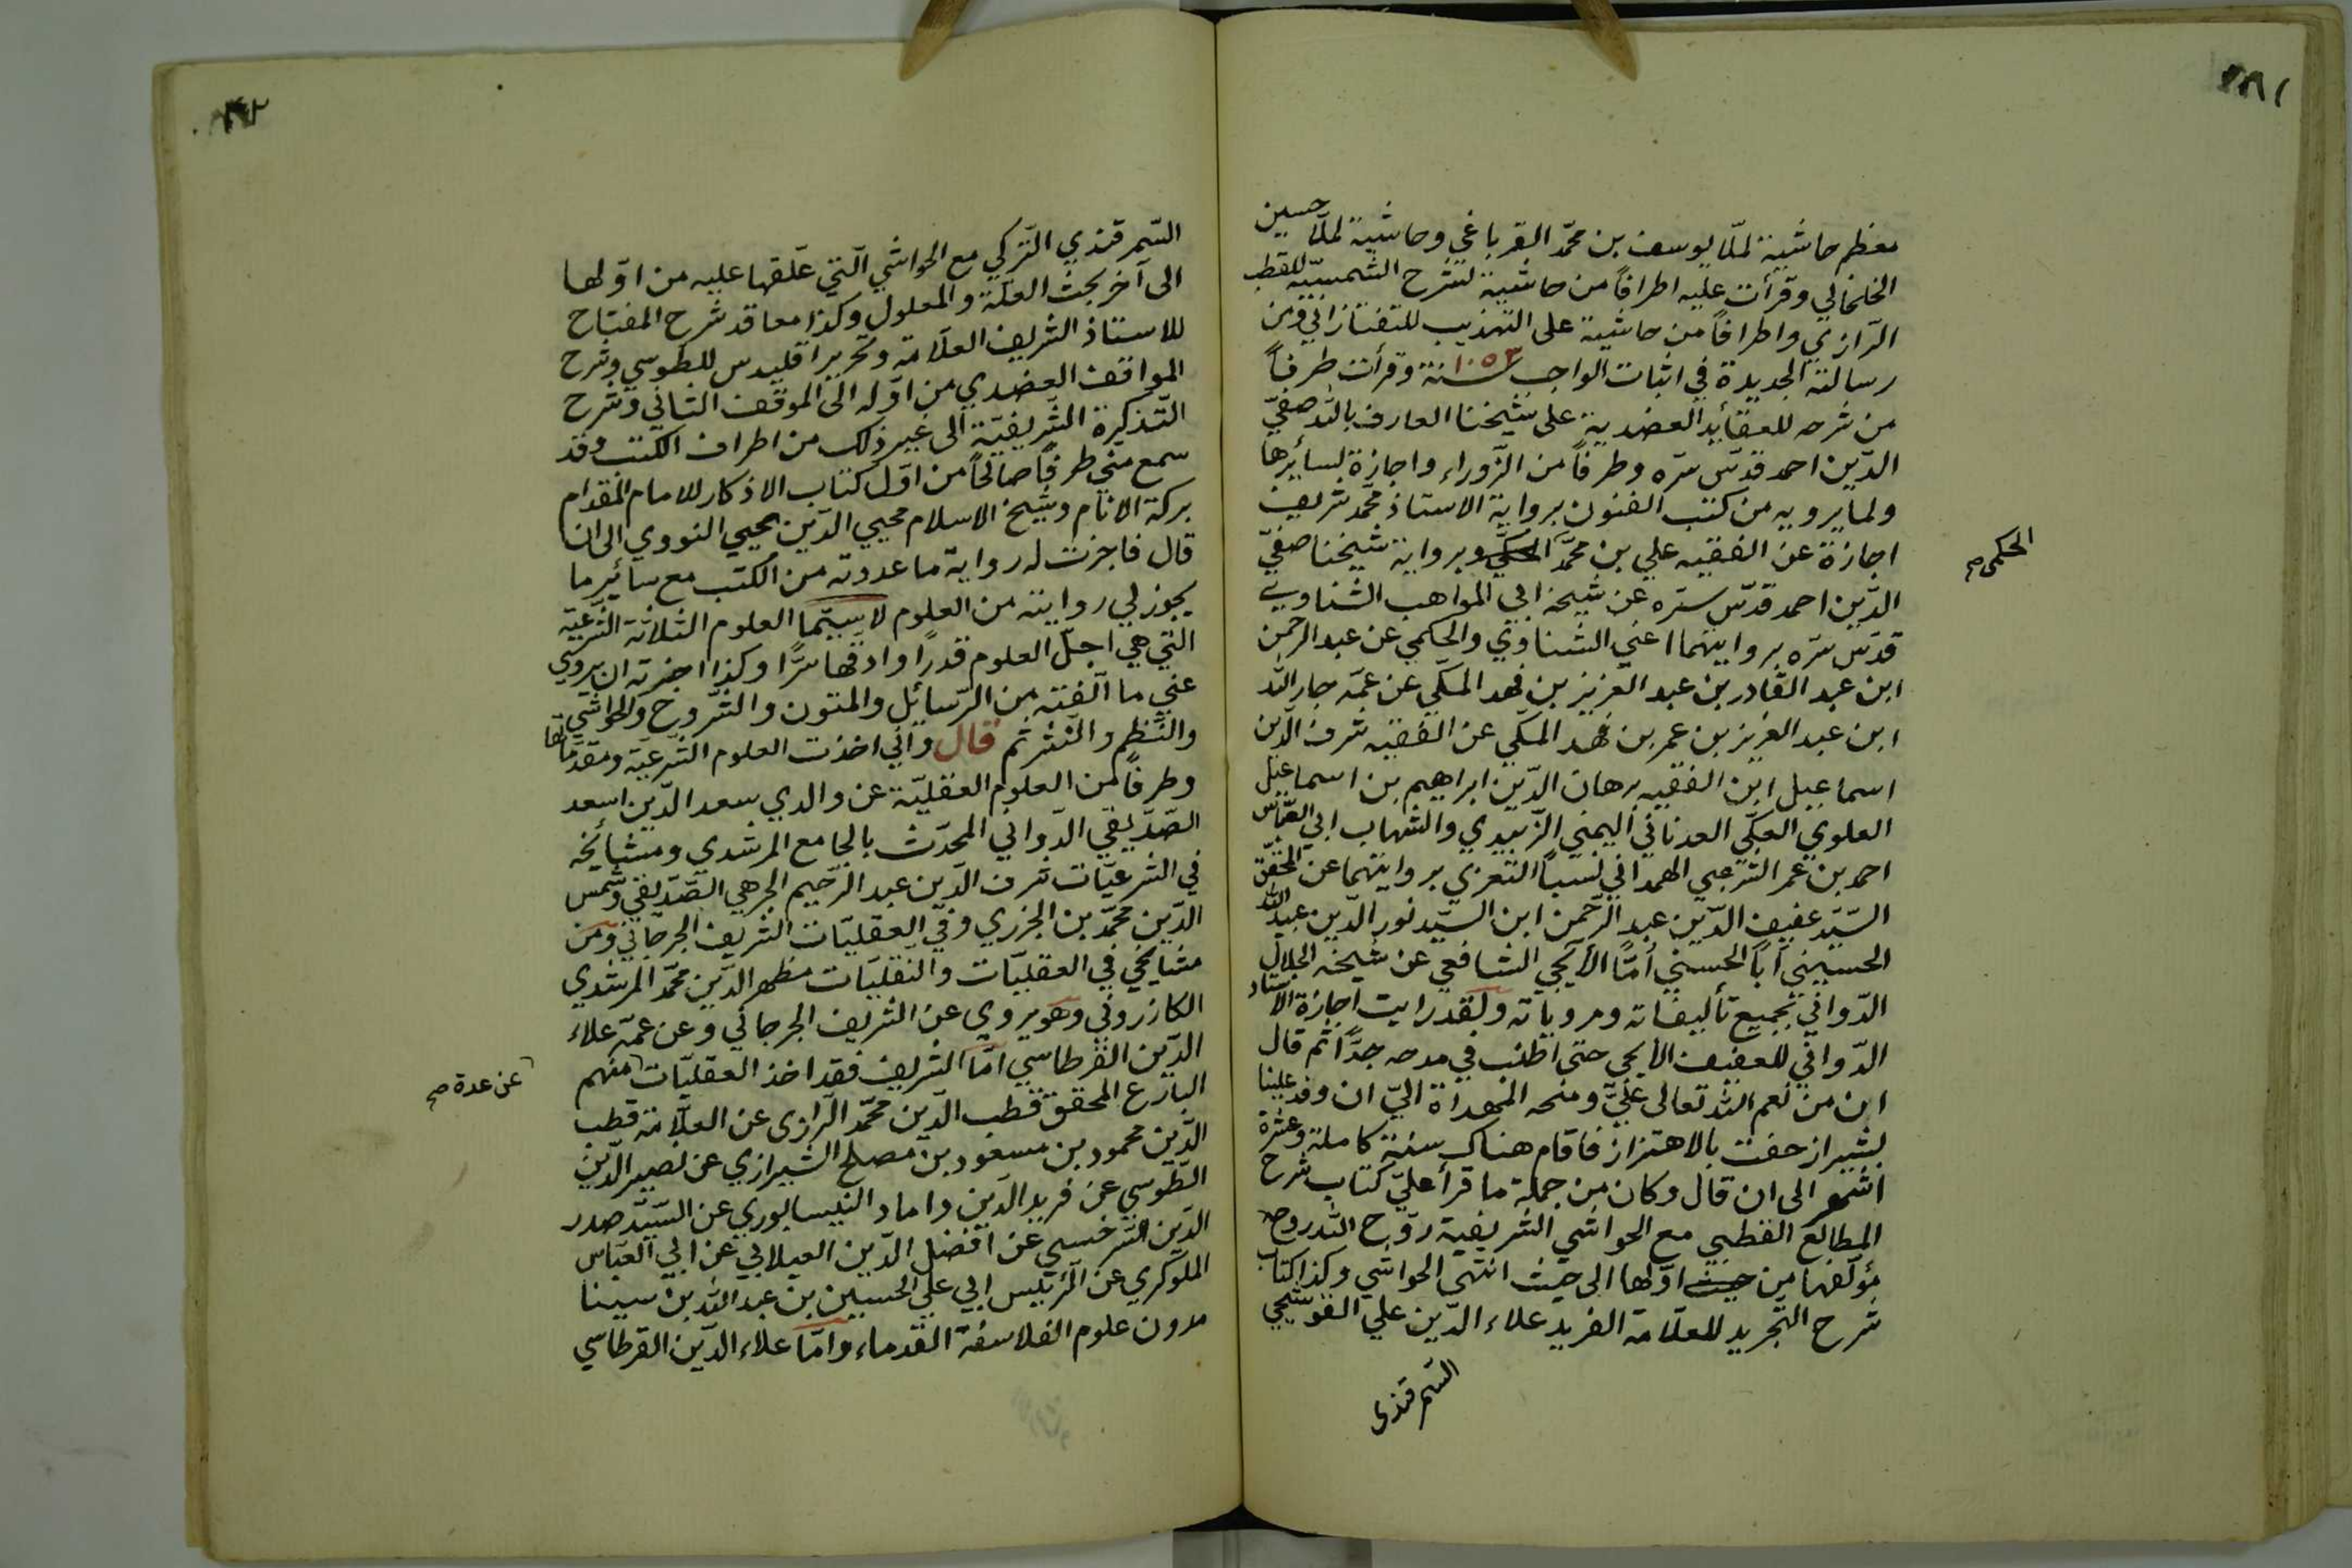 معظم حاشية لملّا يوسف بن محمّد القرباغي وحاشية لملّا حسين
الخلخالي وقرأت عليه اطرافاً من حاشية لشرح الشمسيّة للقطب
الرّازي واطرافاً من حاشية على التهذيب للتفتازاني ومن
رسالته الجديدة في اثبات الواجب سنة ١٠٥٣ وقرأت طرفاً
من شرحه للعقائد العضدية على شيخنا العارف بالله صفيّ
الدّين احمد قدّس سرّه وطرفاً من الزّوراء واجازة لسائرها
ولما يرويه من كتب الفنون برواية الاستاذ محمّد شريف
اجازة عن الفقيه علي بن محمّد وبرواية شيخنا صفيّ
الحكمي صح
الدّين احمد قدّس سرّه عن شيخه ابي المواهب الشناوي
قدّس سرّه بروايتهما اعني الشناوي والحكمي عن عبد الرحمن
ابن عبد القادر بن عبد العزيز بن فهد المكّي عن عمّه جار الله
ابن عبد العزيز بن عمر بن فهد المكّي عن الفقيه شرف الدّين
اسماعيل ابن الفقيه برهان الدّين ابراهيم بن اسماعيل
العلوي العكّي العدناني اليمني الزّبيدي والشهاب ابي العبّاس
احمد بن عمر الشرعبي الهمداني نسباً التعزي بروايتهما عن المحقّق
السّيّد عفيف الدّين عبد الرّحمن ابن السّيّد نور الدّين عبد الله
الحسيني اباً الحسني أمّاً الأيجي الشافعي عن شيخه الجلال
الدّواني بجميع تأليفاته ومروياته ولقد رايت اجازة الاستاد
الدّواني للعفيف الايجي حتى اطنب في مدحه جدّاً ثم قال
ان من نعم الله تعالى عليّ ومنحه المهداة اليّ ان وفد علينا
بشيراز حفت بالاهتزاز فاقام هناك سنة كاملة وعشرة
اشهر الى ان قال وكان من جملة ما قرأ عليّ كتاب شرح
المطالع القطبي مع الحواشي الشريفية روّح الله روح
مؤلّفها من اوّلها الى حيث انتهى الحواشي وكذا كتاب
شرح التجريد للعلّامة الفريد علاء الدّين علي القوشجي
السّمرقندي
السّمرقندي التركي مع الحواشي الّتي علّقها عليه من اوّلها
الى آخر بحث العلّة والمعلول وكذا معاقد شرح المفتاح
للاستاذ الشريف العلّامة وتحرير اقليدس للطوسي وشرح
المواقف العضدي من اوّله الى الموقف الثاني وشرح
التّذكرة الشّريفيّة الى غير ذلك من اطراف الكتب وقد
سمع منّي طرفاً صالحاً من اوّل كتاب الاذكار للامام المقدام
بركة الانام وشيخ الاسلام محيي الدّين يحيي النووي الى ان
قال فاجزت له رواية ما عددته من الكتب مع سائر ما
يجوز لي روايته من العلوم لا سيّما العلوم الثلاثة الشّرعيّة
التي هي اجلّ العلوم قدرًا وادقها سرًّا وكذا اجزته ان يروي
عنّي ما الّفته من الرّسائل والمتون والشّروح والحواشي
والنّظم والنّثر ثم قال وانّي اخذت العلوم الشّرعيّة ومقدّماتها
وطرفاً من العلوم العقليّة عن والدي سعد الدّين اسعد
الصّدّيقي الدّواني المحدّث بالجامع المرشدي ومشائخه
في الشرعيّات شرف الدّين عبد الرّحيم الجرهي الصّدّيقي وشمس
الدّين محمّد بن الجزري وفي العقليّات الشريف الجرجاني ومن
مشائخي في العقليّات والنّقليّات مظهر الدّين محمّد المرشدي
الكازروني وهو يروي عن الشريف الجرجاني وعن عمّه علاء
الدّين القرطاسي امّا الشريف فقد اخذ العقليّات منهم
عن عدة صح
البارع المحقّق قطب الدّين محمّد الرّازي عن العلّامة قطب
الدّين محمود بن مسعود بن مصلح الشيرازي عن نصير الدّين
الطّوسي عن فريد الدّين داماد النّيسابوري عن السّيّد صدر
الدّين السّرخسي عن افضل الدّين الغيلاني عن ابي العبّاس
اللوكري عن الرئيس ابي علي الحسين بن عبد الله بن سينا
مدوّن علوم الفلاسفة القدماء وامّا علاء الدّين القرطاسي